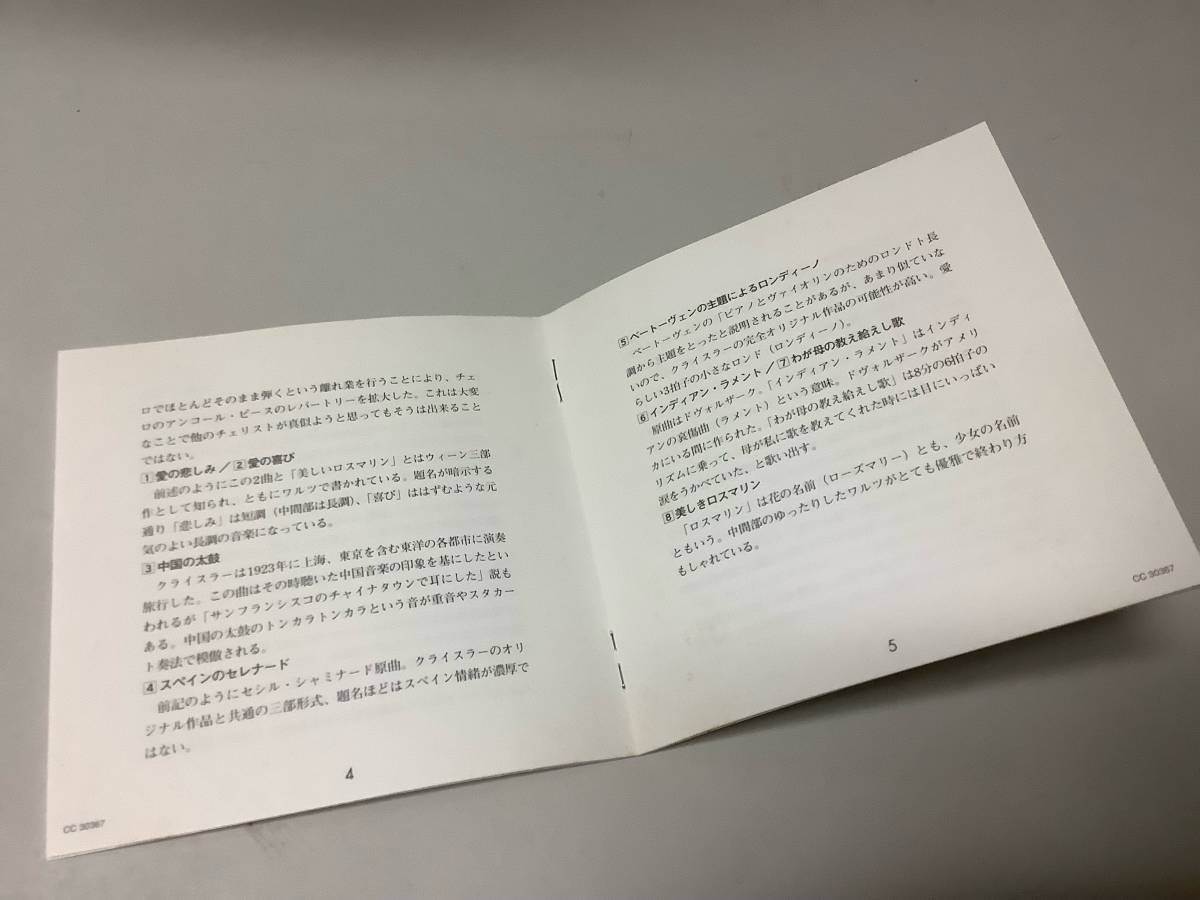 ロでほとんどそのまま弾くという離れ業を行うことにより、チェ
ロのアンコール・ピースのレパートリーを拡大した。これは大変
なことで他のチェリストが真似ようと思ってもそうは出来ること
ではない。
1 愛の悲しみ／2 愛の喜び
前述のようにこの2曲と「美しいロスマリン」とはウィーン三部
作として知られ、ともにワルツで書かれている。題名が暗示する
通り「悲しみ」は短調（中間部は長調）、「喜び」ははずむような元
気のよい長調の音楽になっている。
3 中国の太鼓
クライスラーは1923年に上海、東京を含む東洋の各都市に演奏
旅行した。この曲はその時聴いた中国音楽の印象を基にしたとい
われるが「サンフランシスコのチャイナタウンで耳にした」説も
ある。中国の太鼓のトンカラトンカラという音が重音やスタカー
ト奏法で模倣される。
4 スペインのセレナード
前記のようにセシル・シャミナード原曲。クライスラーのオリ
ジナル作品と共通の三部形式、題名ほどはスペイン情緒が濃厚で
はない。
4
CC 30367
5 ベートーヴェンの主題によるロンディーノ
ベートーヴェンの「ピアノとヴァイオリンのためのロンドト長
調から主題をとったと説明されることがあるが、あまり似ていな
いので、クライスラーの完全オリジナル作品の可能性が高い。愛
らしい3拍子の小さなロンド（ロンディーノ）。
6 インディアン・ラメント／7 わが母の教え給えし歌
原曲はドヴォルザーク。「インディアン・ラメント」はインディ
アンの哀傷曲（ラメント）という意味。ドヴォルザークがアメリ
カにいる間に作られた。「わが母の教え給えし歌」は8分の6拍子の
リズムに乗って、母が私に歌を教えてくれた時には目にいっぱい
涙をうかべていた、と歌い出す。
8 美しきロスマリン
「ロスマリン」は花の名前（ローズマリー）とも、少女の名前
ともいう。中間部のゆったりしたワルツがとても優雅で終わり方
もしゃれている。
5
CC 30367